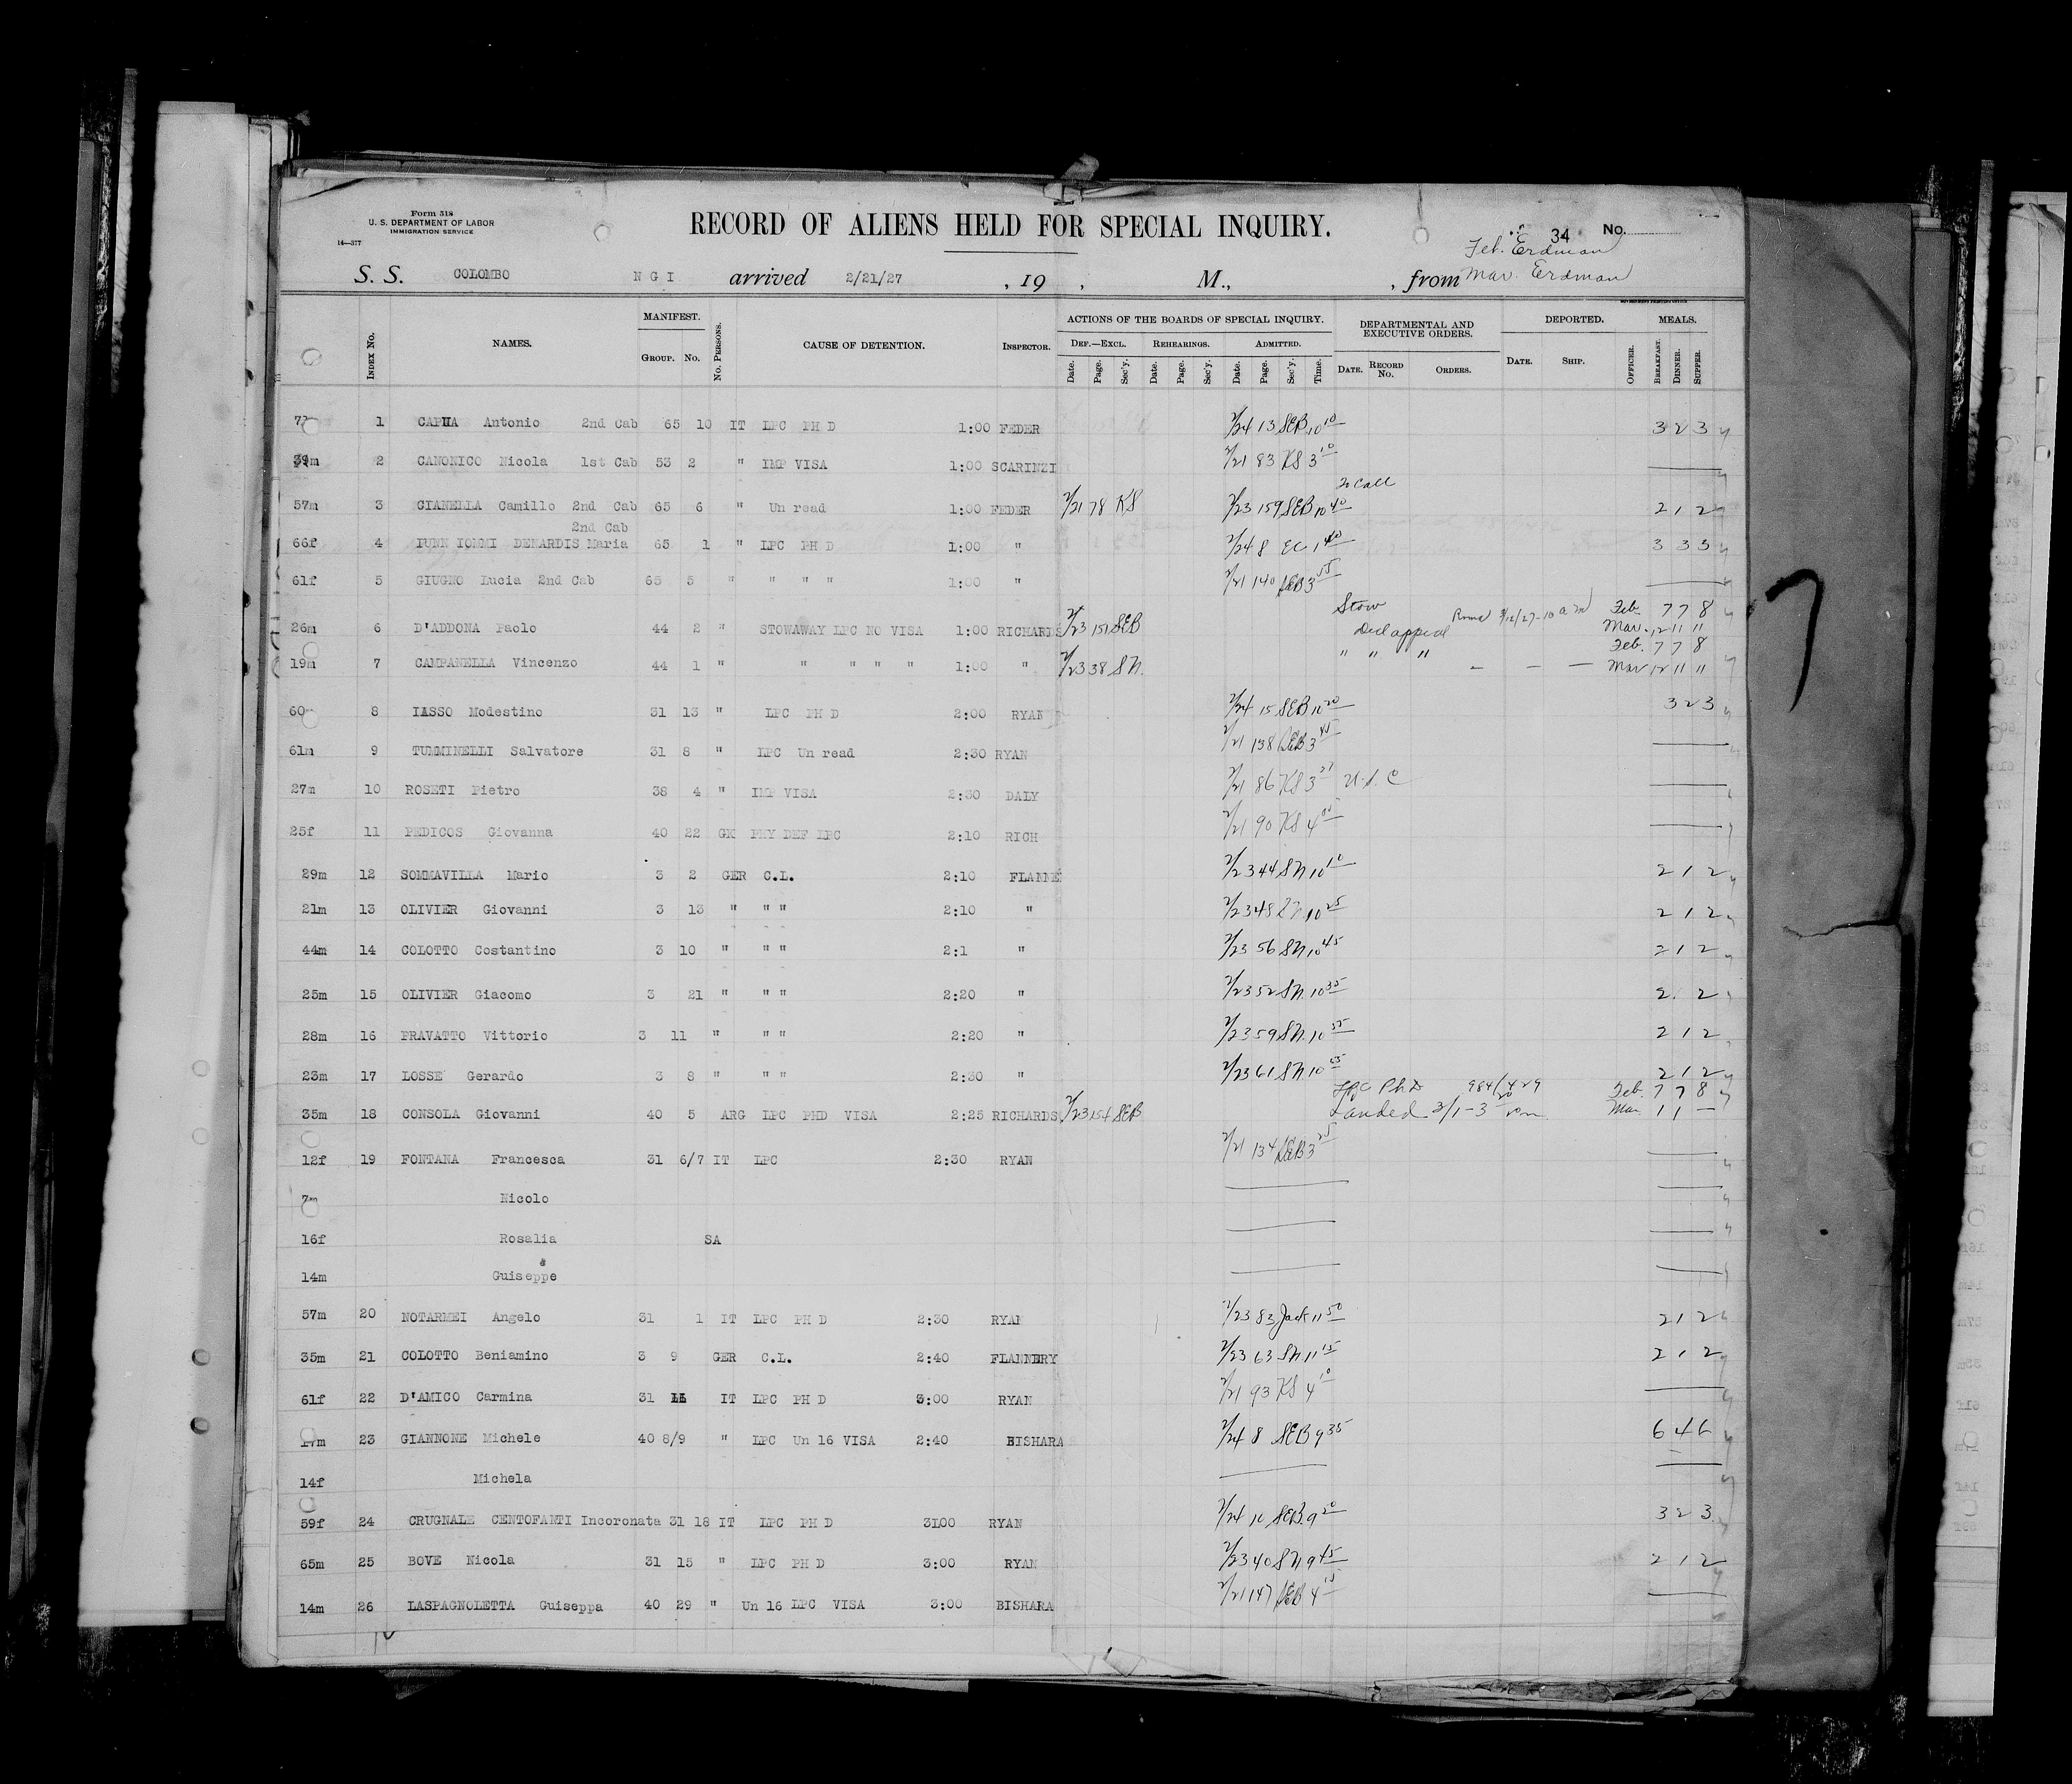 Form 518
U. S. DEPARTMENT OF LABOR
IMMIGRATION SERVICE
14—377
RECORD OF ALIENS HELD FOR SPECIAL INQUIRY.
34 No.
Feb. Erdman
S. S. COLOMBO N G I arrived 2/21/27 , 19 , M., , from Mar. Erdman
INDEX No. NAMES. MANIFEST. GROUP. No. No. PERSONS. CAUSE OF DETENTION. INSPECTOR. ACTIONS OF THE BOARDS OF SPECIAL INQUIRY. DEF.—EXCL. REHEARINGS. ADMITTED. DEPARTMENTAL AND EXECUTIVE ORDERS. DEPORTED. MEALS.
Date. Page. Sec'y. Date. Page. Sec'y. Date. Page. Sec'y. Time. DATE. RECORD No. ORDERS. DATE. SHIP. OFFICER. BREAKFAST. DINNER. SUPPER.
1 Antonio 2nd Cab 65 10 IT LPC PH D 1:00 FEDER 2/24 13 SEB 10 10 3 2 3
39m 2 CANONICO Nicola 1st Cab 53 2 " IMP VISA 1:00 SCARINZI 2/21 83 KS 3 10
57m 3 GIANELLA Camillo 2nd Cab 65 6 " Un read 1:00 FEDER 2/21 78 KS 2/23 159 SEB 10 40 2 1 2
2nd Cab
66f 4 IOMMI DENARDIS Maria 65 1 " LPC PH D 1:00 " 2/24 8 EC 1 40 3 3 3
61f 5 GIUGNO Lucia 2nd Cab 65 5 " " " " 1:00 " 2/21 140 SEB 3 55
Stow Feb. 7 7 8
26m 6 D'ADDONA Paolo 44 2 " STOWAWAY LPC NO VISA 1:00 RICHARDS 2/23 151 SEB Decl appeal Roma 3/12/27-10 a m Mar. 12 11 11
Feb. 7 7 8
19m 7 CAMPANELLA Vincenzo 44 1 " " " " " 1:00 " 2/23 38 SN. " " " — — — Mar 12 11 11
60 8 IASSO Modestino 31 13 " LPC PH D 2:00 RYAN 2/24 15 SEB 10 20 3 2 3
61m 9 TUMMINELLI Salvatore 31 8 " LPC Un read 2:30 RYAN 2/21 138 SEB 3 45
27m 10 ROSETI Pietro 38 4 " IMP VISA 2:30 DALY 2/21 86 KS 3 U.S.C
25f 11 PEDICOS Giovanna 40 22 GK PHY DEF LPC 2:10 RICH 2/21 90 KS 4
29m 12 SOMMAVILLA Mario 3 2 GER C.L. 2:10 FLANNE 2/23 44 SN 10 10 2 1 2
21m 13 OLIVIER Giovanni 3 13 " " " 2:10 " 2/23 48 SN 10 25 2 1 2
44m 14 COLOTTO Costantino 3 10 " " " 2:1 " 2/23 56 SN 10 45 2 1 2
25m 15 OLIVIER Giacomo 3 21 " " " 2:20 " 2/23 52 SN. 10 35 2 2
28m 16 FRAVATTO Vittorio 3 11 " " " 2:20 " 2/23 59 SN. 10 55 2 1 2
23m 17 LOSSE Gerardo 3 8 " " " 2:30 " 2/23 61 SN 10 2 1 2
LPC PhD 984/429 Feb. 7 7 8
35m 18 CONSOLA Giovanni 40 5 ARG LPC PHD VISA 2:25 RICHARDS 2/23 154 SEB Landed 3/1-3 20 pm Mar. 1 1 —
12f 19 FONTANA Francesca 31 6/7 IT LPC 2:30 RYAN 2/21 134 SEB 3 25
7m Nicolo
16f Rosalia SA
14m Guiseppe
57m 20 NOTARMEI Angelo 31 1 IT LPC PH D 2:30 RYAN 2/23 83 Jack 11 50 2 1 2
35m 21 COLOTTO Beniamino 3 9 GER C.L. 2:40 FLANNERY 2/23 63 SN 11 15 2 1 2
61f 22 D'AMICO Carmina 31 11 IT LPC PH D 3:00 RYAN 2/21 93 KS 4 10
23 GIANNONE Michele 40 8/9 " LPC Un 16 VISA 2:40 BISHARA 2/24 8 SEB 9 35 6 4 6
14f Michela
59f 24 CRUGNALE CENTOFANTI Incoronata 31 18 IT LPC PH D 3100 RYAN 2/24 10 SEB. 9 50 3 2 3
65m 25 BOVE Nicola 31 15 " LPC PH D 3:00 RYAN 2/23 40 SN 9 45 2 1 2
14m 26 LASPAGNOLETTA Guiseppa 40 29 " Un 16 LPC VISA 3:00 BISHARA 2/21 147 SEB 4 15